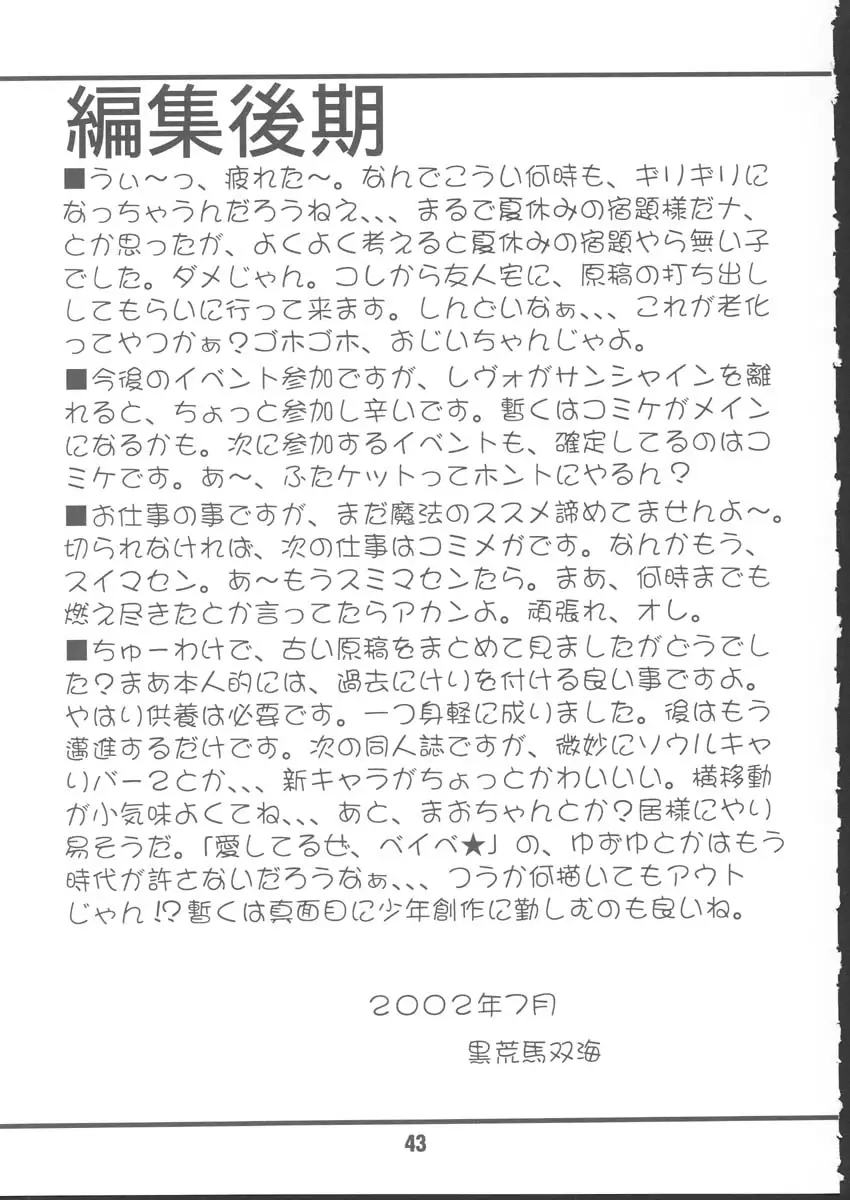 編集後期
■うぃ～っ、疲れた～。なんでこうい何時も、ギリギリに
なっちゃうんだろうねえ、、、まるで夏休みの宿題様だナ、
とか思ったが、よくよく考えると夏休みの宿題やら無い子
でした。ダメじゃん。コレから友人宅に、原稿の打ち出し
してもらいに行って来ます。しんどいなぁ、、、これが老化
ってやつかぁ？ゴホゴホ、おじいちゃんじゃよ。
■今後のイベント参加ですが、レヴォがサンシャインを離
れると、ちょっと参加し辛いです。暫くはコミケがメイン
になるかも。次に参加するイベントも、確定してるのはコ
ミケです。あ～、ふたケットってホントにやるん？
■お仕事の事ですが、まだ魔法のススメ諦めてませんよ～。
切られなければ、次の仕事はコミメガです。なんかもう、
スイマセン。あ～もうスミマセンたら。まあ、何時までも
燃え尽きたとか言ってたらアカンよ。頑張れ、オレ。
■ちゅーわけで、古い原稿をまとめて見ましたがどうでし
た？まあ本人的には、過去にけりを付ける良い事ですよ。
やはり供養は必要です。一つ身軽に成りました。後はもう
邁進するだけです。次の同人誌ですが、微妙にソウルキャ
リバー２とか、、、新キャラがちょっとかわいいい。横移動
が小気味よくてね、、、あと、まおちゃんとか？居様にやり
易そうだ。「愛してるぜ、ベイベ★」の、ゆずゆとかはもう
時代が許さないだろうなぁ、、、つうか何描いてもアウト
じゃん！？暫くは真面目に少年創作に勤しむのも良いね。
２００２年７月
黒荒馬双海
43